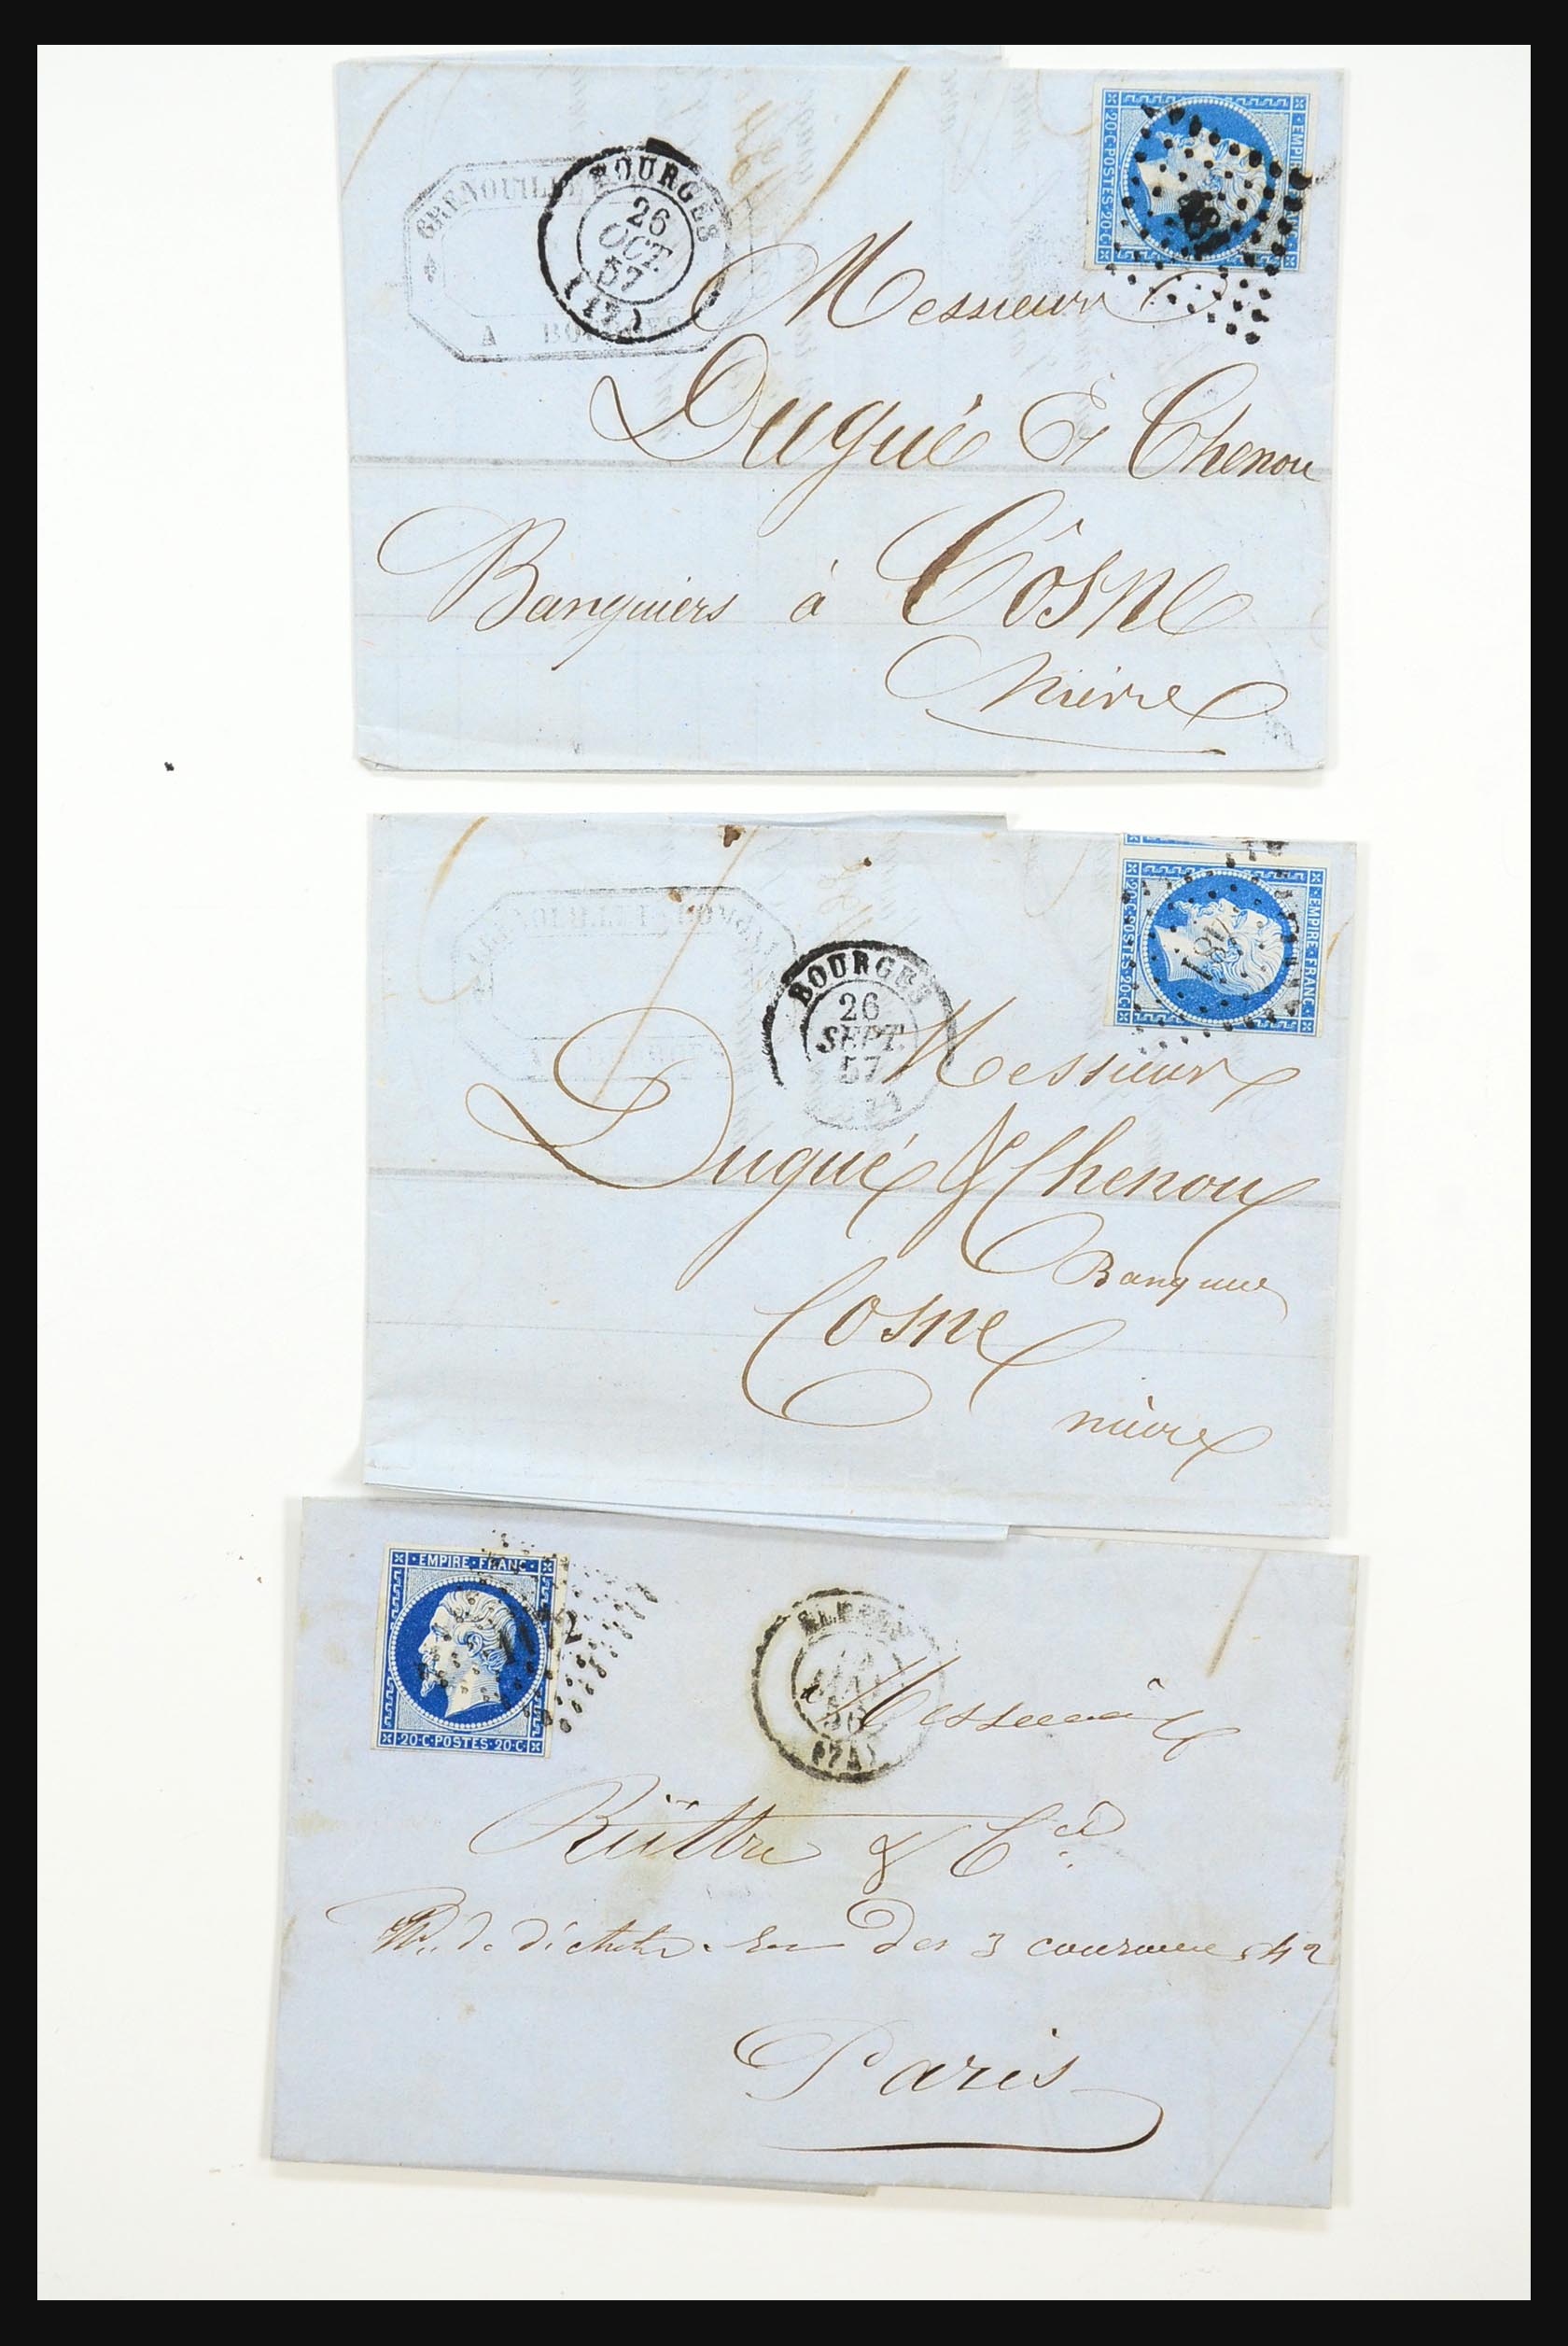 GRENOUILLE
A BOURGES
BOURGES
26
OCT.
57
(17)
EMPIRE FRANC
20·C·POSTES·20·C
Messieurs
Dugué Et Chenou
Banquiers à Côsne
Nièvre
BOURGES
26
SEPT.
57
EMPIRE·FRANC
20·C·POSTES·20·C
481
Messieurs
Dugué & Chenou
Banquiers
Cosne
nièvre
EMPIRE·FRANC
20·C·POSTES·20·C
ELBEUF
56
(74)
Messieurs
& Cie
des 3 couronnes 42
Paris